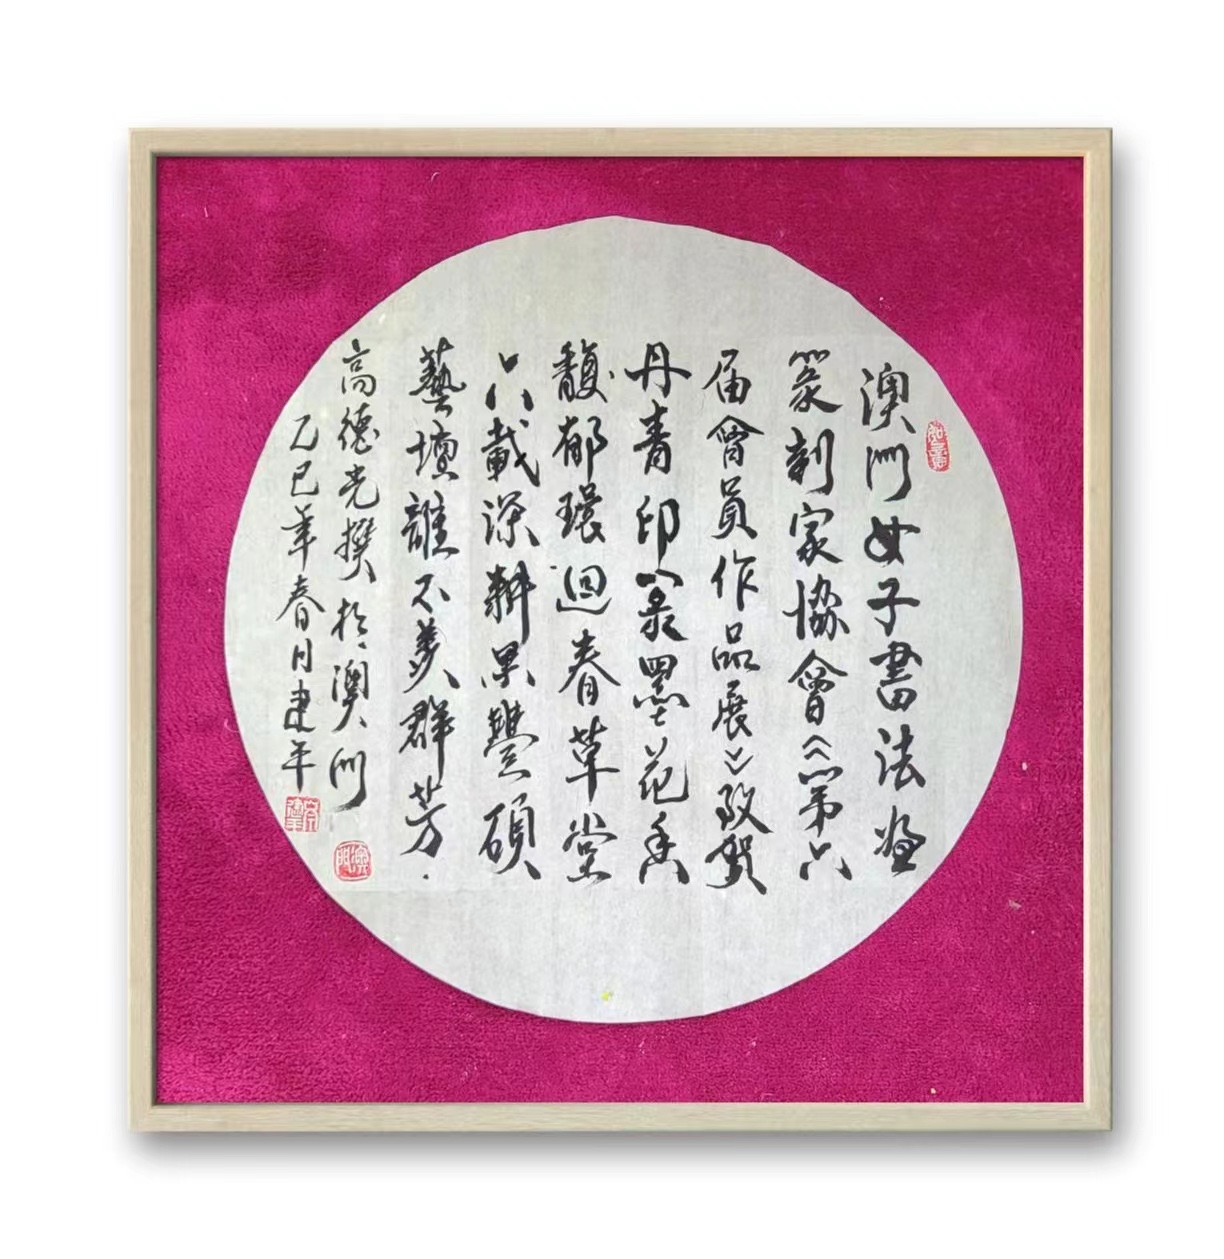 如意
澳門女子書法畫
篆刻家協會《第六
届會員作品展》致賀
丹青印篆墨花香
馥郁環迴春草堂
六載深耕果豐碩
藝壇誰不羡群芳
高德光撰於澳門
乙巳年春月建平
澳門